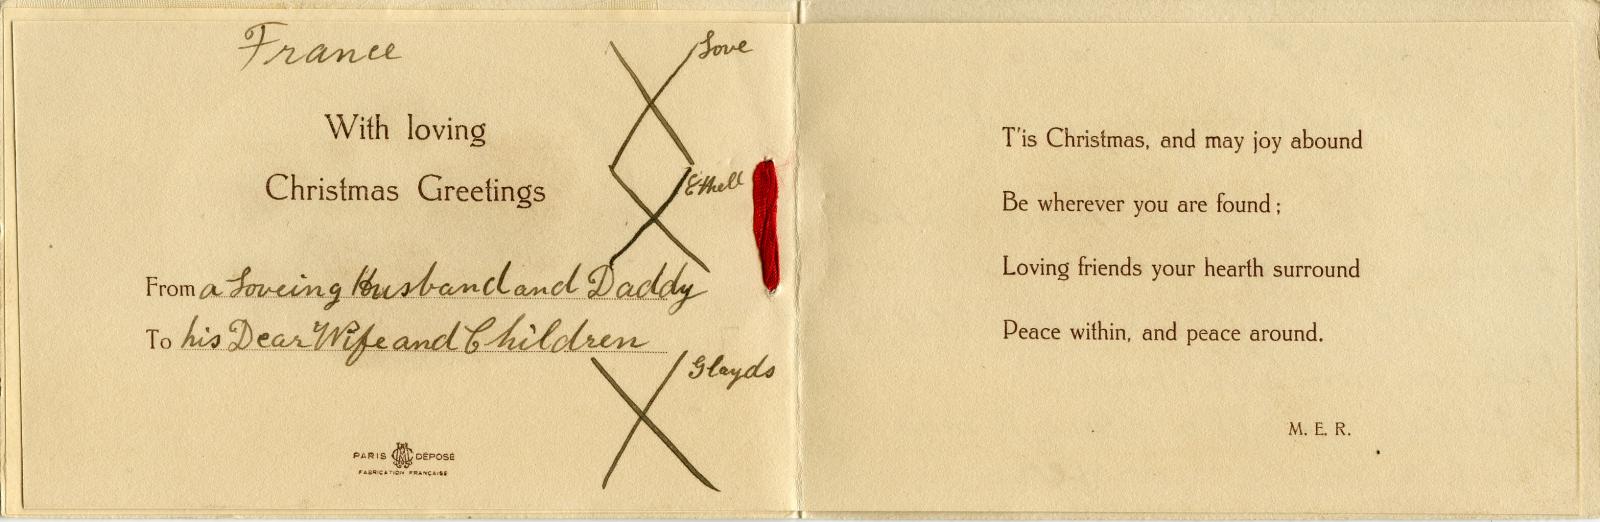 France
Love
With loving
Christmas Greetings
Ethell
From a Loveing Husband and Daddy
To his Dear Wife and Children
Glayds
PARIS DÉPOSÉ
FABRICATION FRANÇAISE
T'is Christmas, and may joy abound
Be wherever you are found;
Loving friends your hearth surround
Peace within, and peace around.
M. E. R.